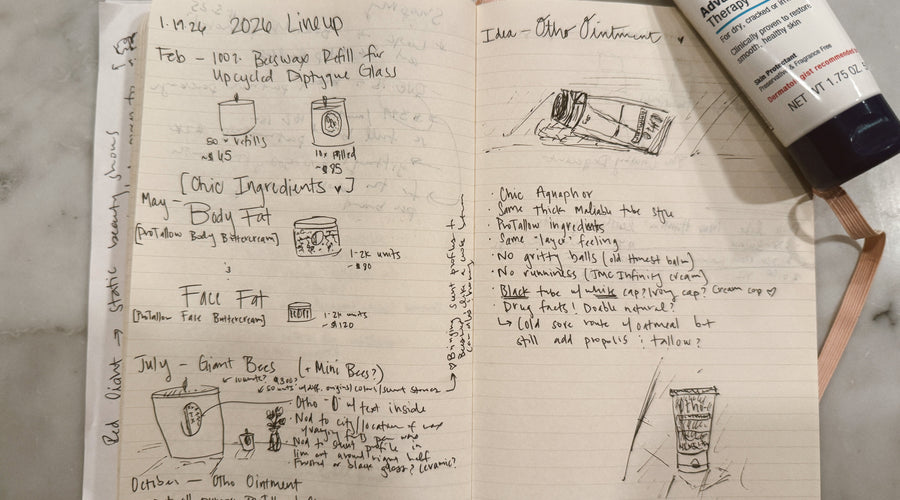 1.19.26 2026 Lineup
Feb – 100% Beeswax Refill for
Upcycled Diptyque Glass
50 refills
~$45
10x filled
~$85
[Chic Ingredients ♥]
May –
Body Fat
[ProTallow Body Buttercream]
1-2k units
~$80
Face Fat
[ProTallow Face Buttercream]
1-2k units
~$120
July – Giant Bees (+ Mini Bees?)
10 units? $300?
50 units w/ diff. origins/colors/scent stories
· Otho "O" w/ text inside
· Nod to city/location of wax
· Nod to scent profile in
Frosted or black glass? Ceramic?
October – Otho Ointment
Bringing scent profiles to
Red Giant → static beauty shows
Idea – Otho Ointment ♥
otho
· Chic Aquaphor
· Same thick malleable tube style
· ProTallow ingredients
· Same "layer" feeling
· No gritty balls (old Honest balm)
· No runniness (JMC Infinity cream)
· Black tube w/ white cap? Ivory cap? Cream cap ♡
· Drug facts? Doable natural?
↳ Cold sore route w/ oatmeal but
still add propolis & tallow?
Otho
Adva
Therapy
For dry, cracked or irri
Clinically proven to restore
smooth, healthy skin
Skin Protectant
Preservative & Fragrance Free
Dermatologist recommended
NET WT 1.75 OZ